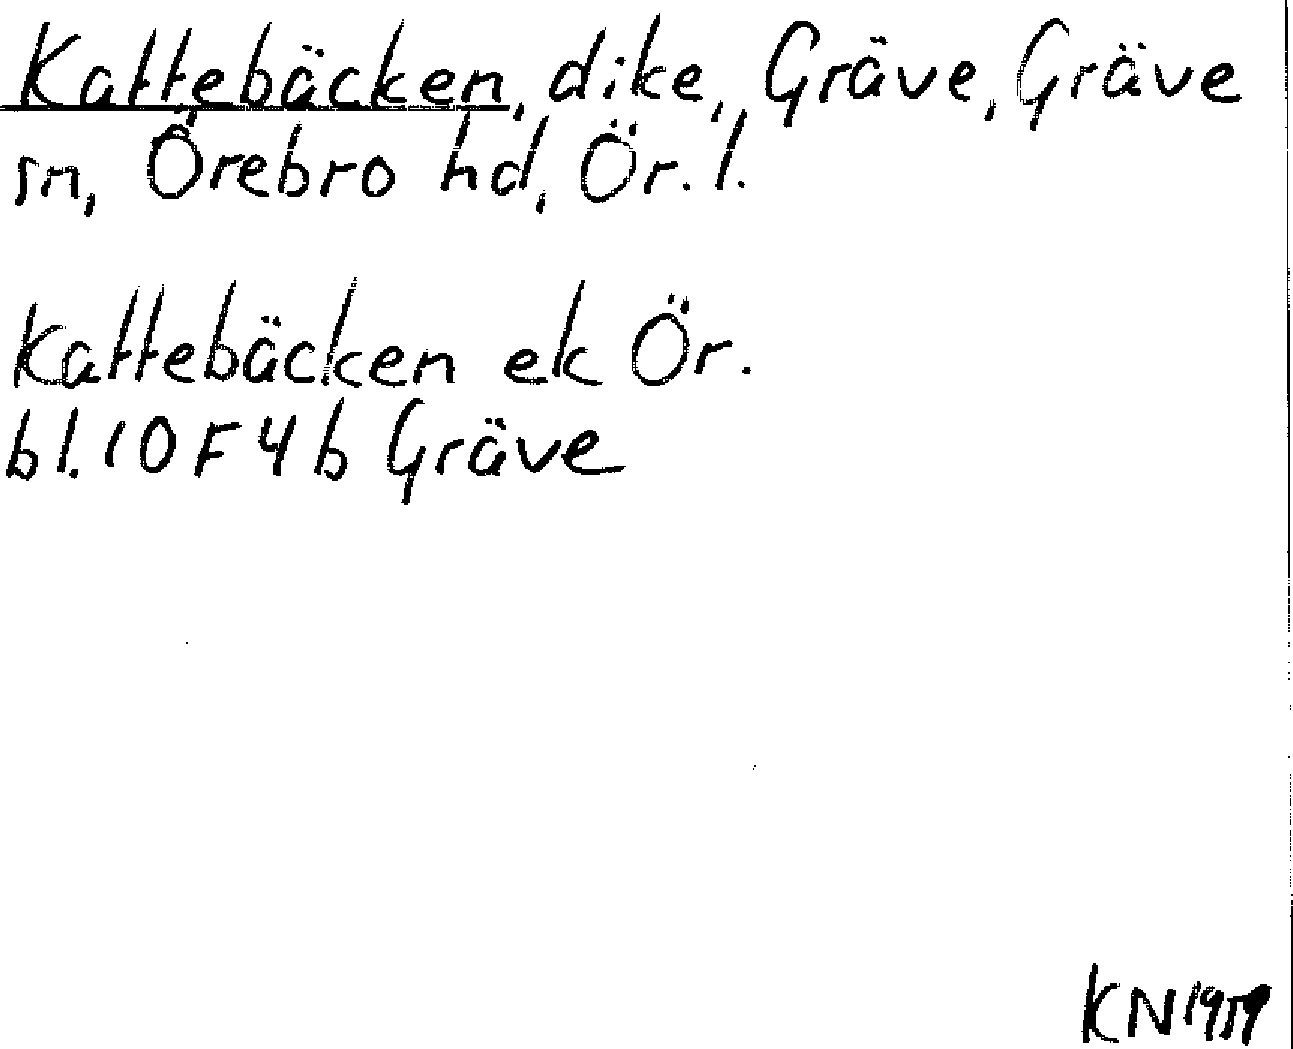 Kattebäcken, dike, Gräve, Gräve
sn, Örebro hd, Ör. l.
Kattebäcken ek Ör.
bl. 10 F 4 b Gräve
KN 1959